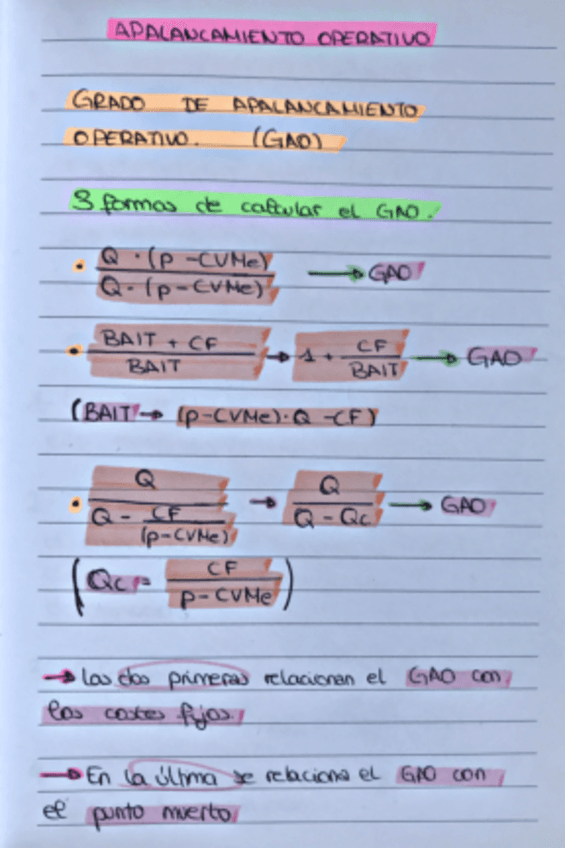 APALANCAMIENTO OPERATIVO
GRADO DE APALANCAMIENTO
OPERATIVO. (GAO)
3 formas de calcular el GAO.
• Q · (p - CVMe) / Q · (p - CVMe) → GAO
• BAIT + CF / BAIT → 1 + CF / BAIT → GAO
(BAIT → (p-CVMe)·Q - CF)
• Q / Q - CF / (p-CVMe) → Q / Q - Qc → GAO
(Qc = CF / p - CVMe)
→ Las dos primeras relacionan el GAO con
los costes fijos.
→ En la última se relaciona el GAO con
el punto muerto